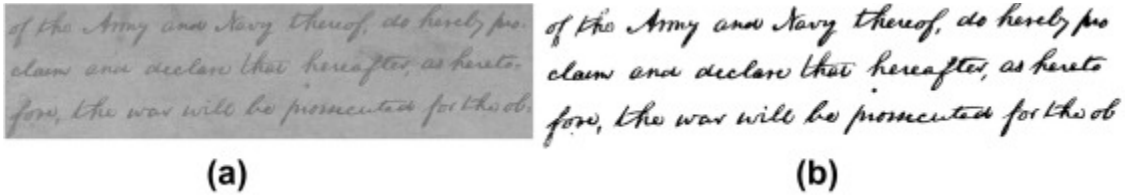 of the Army and Navy thereof, do hereby pro-
claim and declare that hereafter, as hereto-
fore, the war will be prosecuted for the ob-
(a)
of the Army and Navy thereof, do hereby pro
claim and declare that hereafter, as hereto
fore, the war will be prosecuted for the ob
(b)